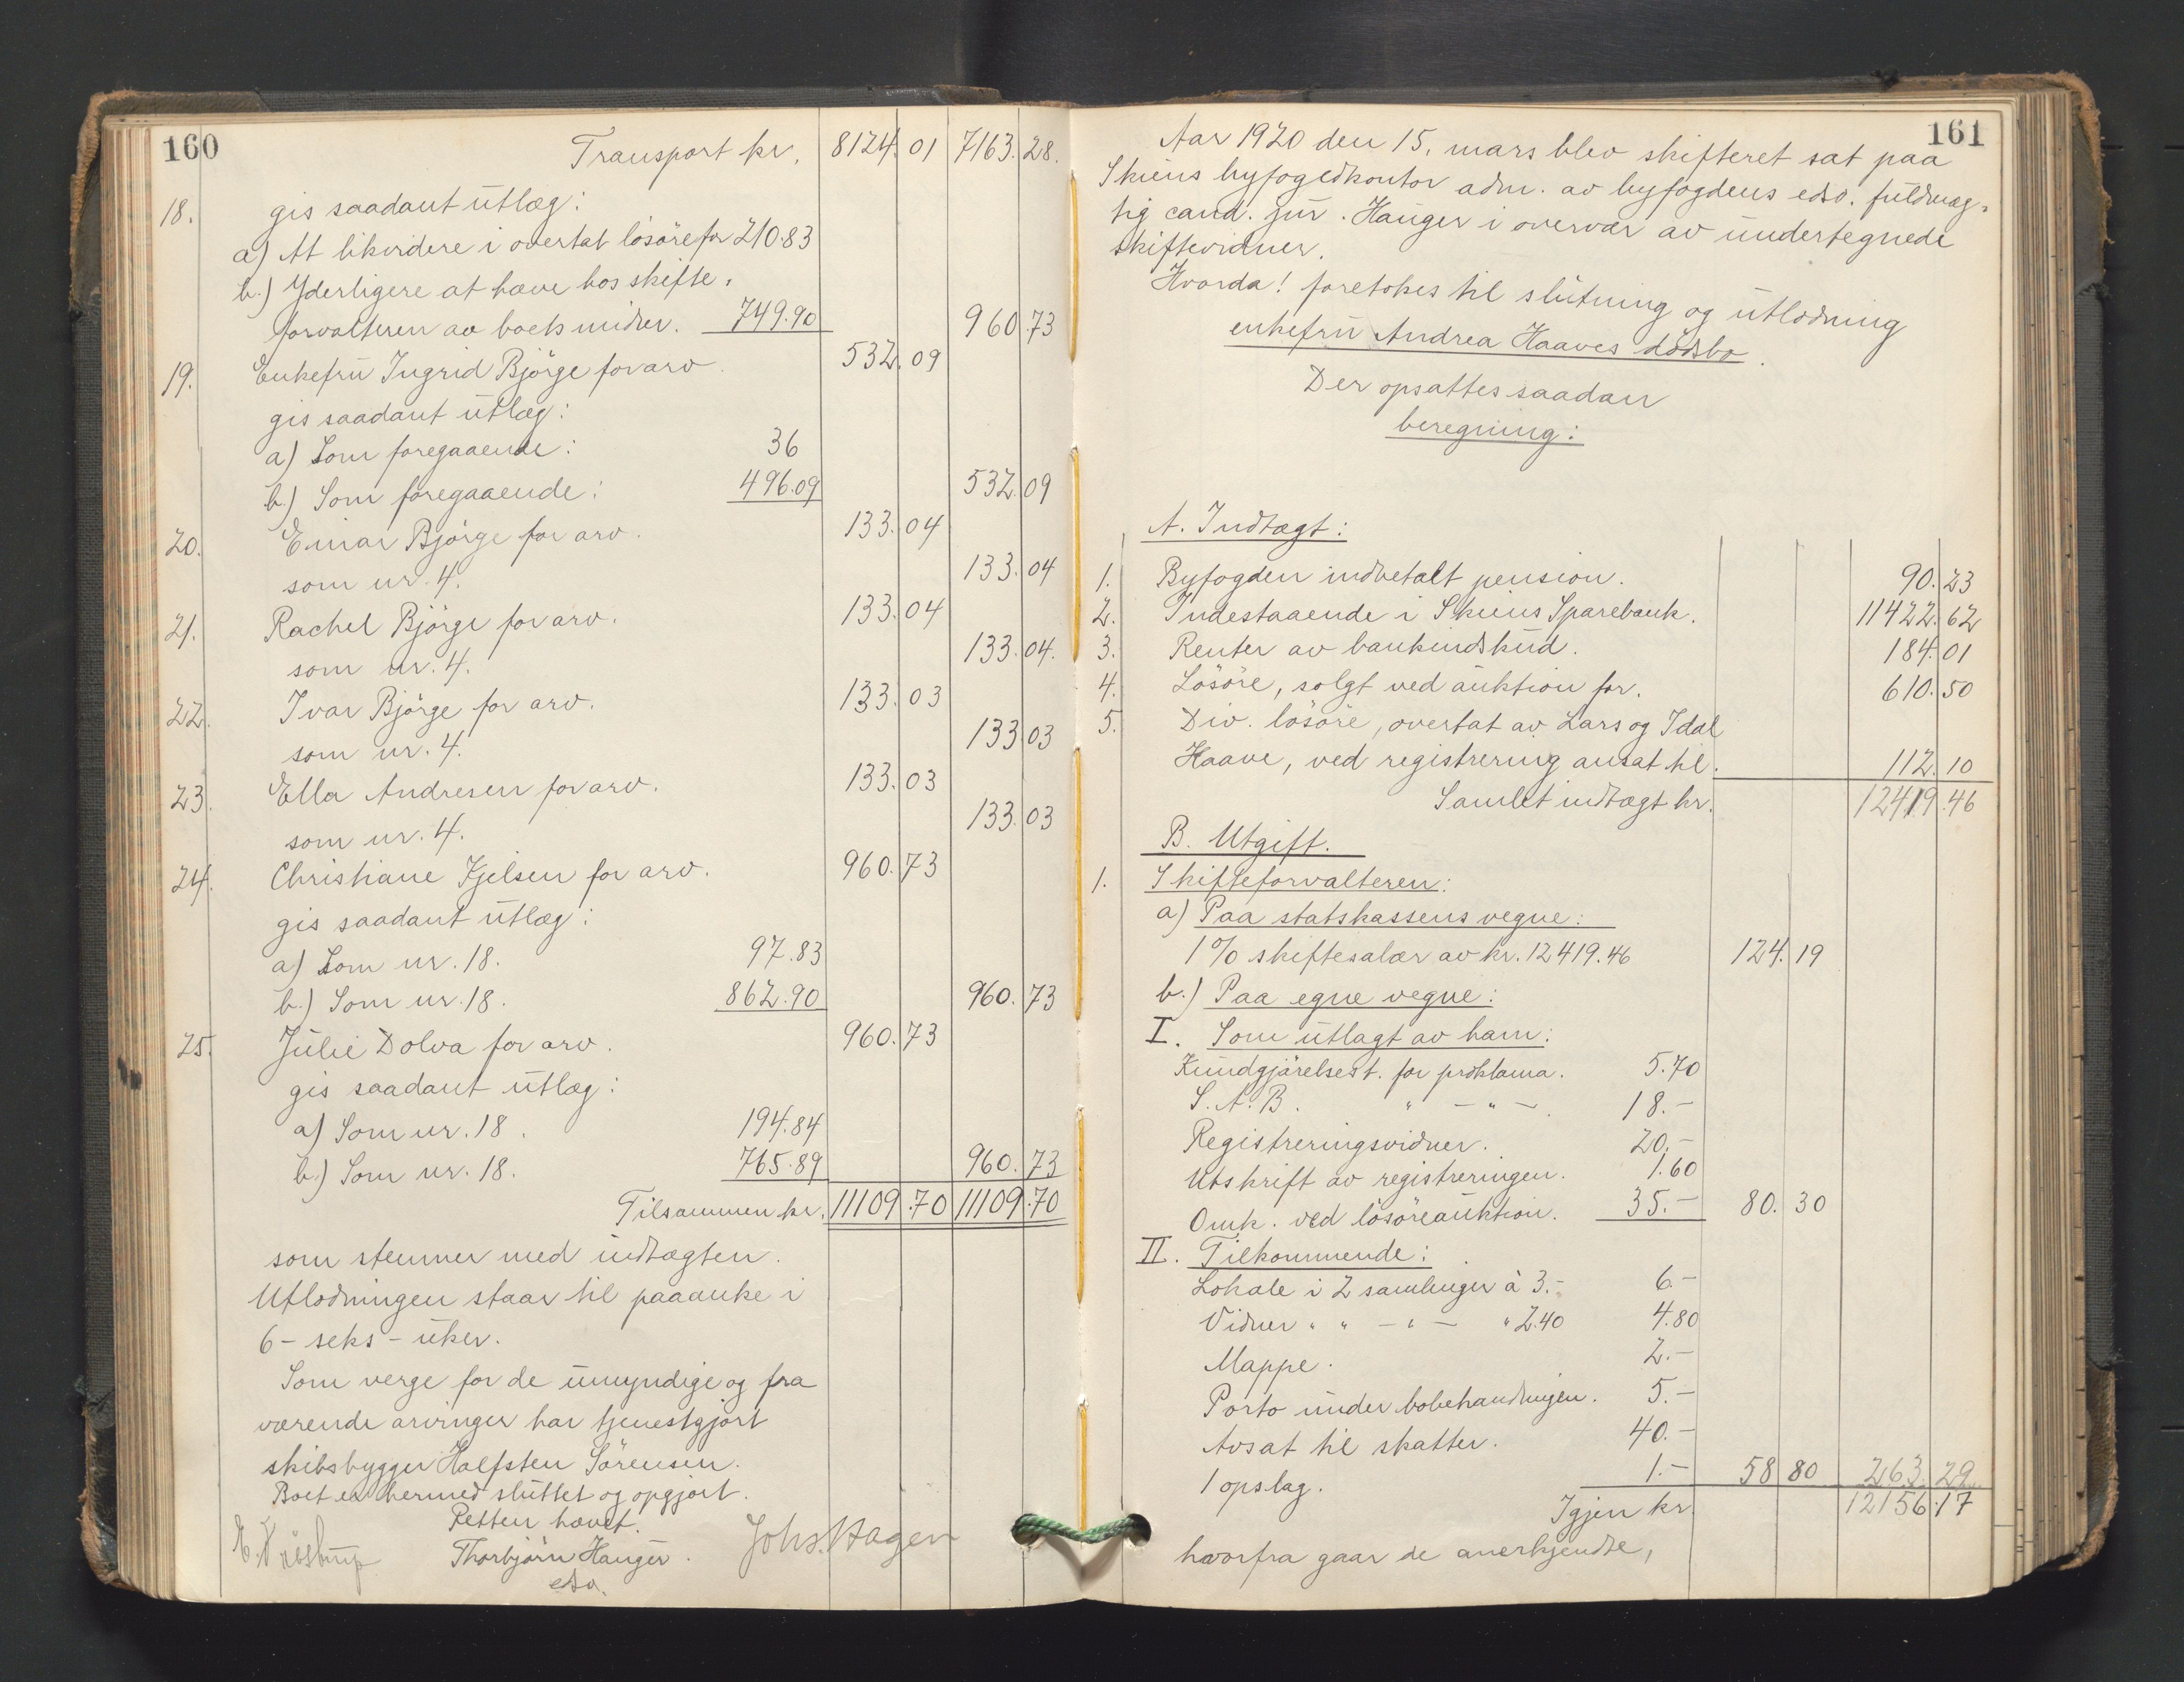 160
Transport kr. 8124.01 7163.28.
18. gis saadant utlæg:
a) At likvidere i overtat lösöre for 210.83
b.) Yderligere at hæve hos skifte-
forvalteren av boets midler. 749.90 960.73
19. Enkefru Ingrid Björge for arv. 532.09
gis saadant utlæg:
a) Som foregaaende: 36
b.) Som foregaaende: 496.09 532.09
20. Einar Björge for arv. 133.04
som nr. 4. 133.04
21. Rachel Björge for arv. 133.04
som nr. 4. 133.04.
22. Ivar Björge for arv. 133.03
som nr. 4. 133 03
23. Ella Andresen for arv. 133.03
som nr. 4. 133.03
24. Christiane Kjelsen for arv. 960.73
gis saadant utlæg:
a) Som nr. 18. 97.83
b.) Som nr. 18. 862.90 960.73
25. Julie Dolva for arv. 960.73
gis saadant utlæg:
a) Som nr. 18. 194.84
b.) Som nr. 18. 765.89 960.73
Tilsammen kr. 11109.70 11109.70
som stemmer med indtægten.
Utlodningen staar til paaanke i
6 - seks - uker.
Som verge for de umyndige og fra
værende arvinger har tjenestgjort
skibsbygger Halfsten Sörensen.
Boet er hermed sluttet og opgjort.
Retten hævet.
Thorbjörn Hauger. Johs. Hagen
edsv.
161
Aar 1920 den 15. mars blev skifteret sat paa
Skiens byfogedkontor adm. av byfogdens edsv. fuldmæg-
tig cand. jur. Hauger i overvær av undertegnede
skiftevidner.
Hvorda! foretokes til slutning og utlodning
enkefru Andrea Haaves dödsbo.
Der opsattes saadan
beregning:
A. Indtægt:
1. Byfogden indbetalt pension. 90.23
2. Indestaaende i Skiens Sparebank. 11422.62
3. Renter av bankindskud. 184.01
4. Lösöre, solgt ved auktion for. 610.50
5. Div. lösöre, overtat av Lars og Idal
Haave, ved registrering ansat til. 112.10
Samlet indtægt kr. 12419.46
B. Utgift.
1. Skifteforvalteren:
a) Paa statskassens vegne:
1% skiftesalær av kr. 12419.46 124.19
b.) Paa egne vegne:
I. Som utlagt av ham:
Kundgjörelsest. for proklama. 5.70
S. A. B. " — " — . 18.-
Registreringsvidner. 20.-
Utskrift av registreringen. 1.60
Omk. ved lösöreauktion. 35.- 80.30
II. Tilkommende:
Lokale i 2 samlinger à 3.- 6.-
Vidner " " — " — " 2.40 4.80
Mappe. 2.-
Porto under bobehandlingen. 5.-
Avsat til skatter. 40.-
1 opslag. 1.- 58 80 263.29
Igjen kr. 12156.17
hvorfra gaar de anerkjendte,